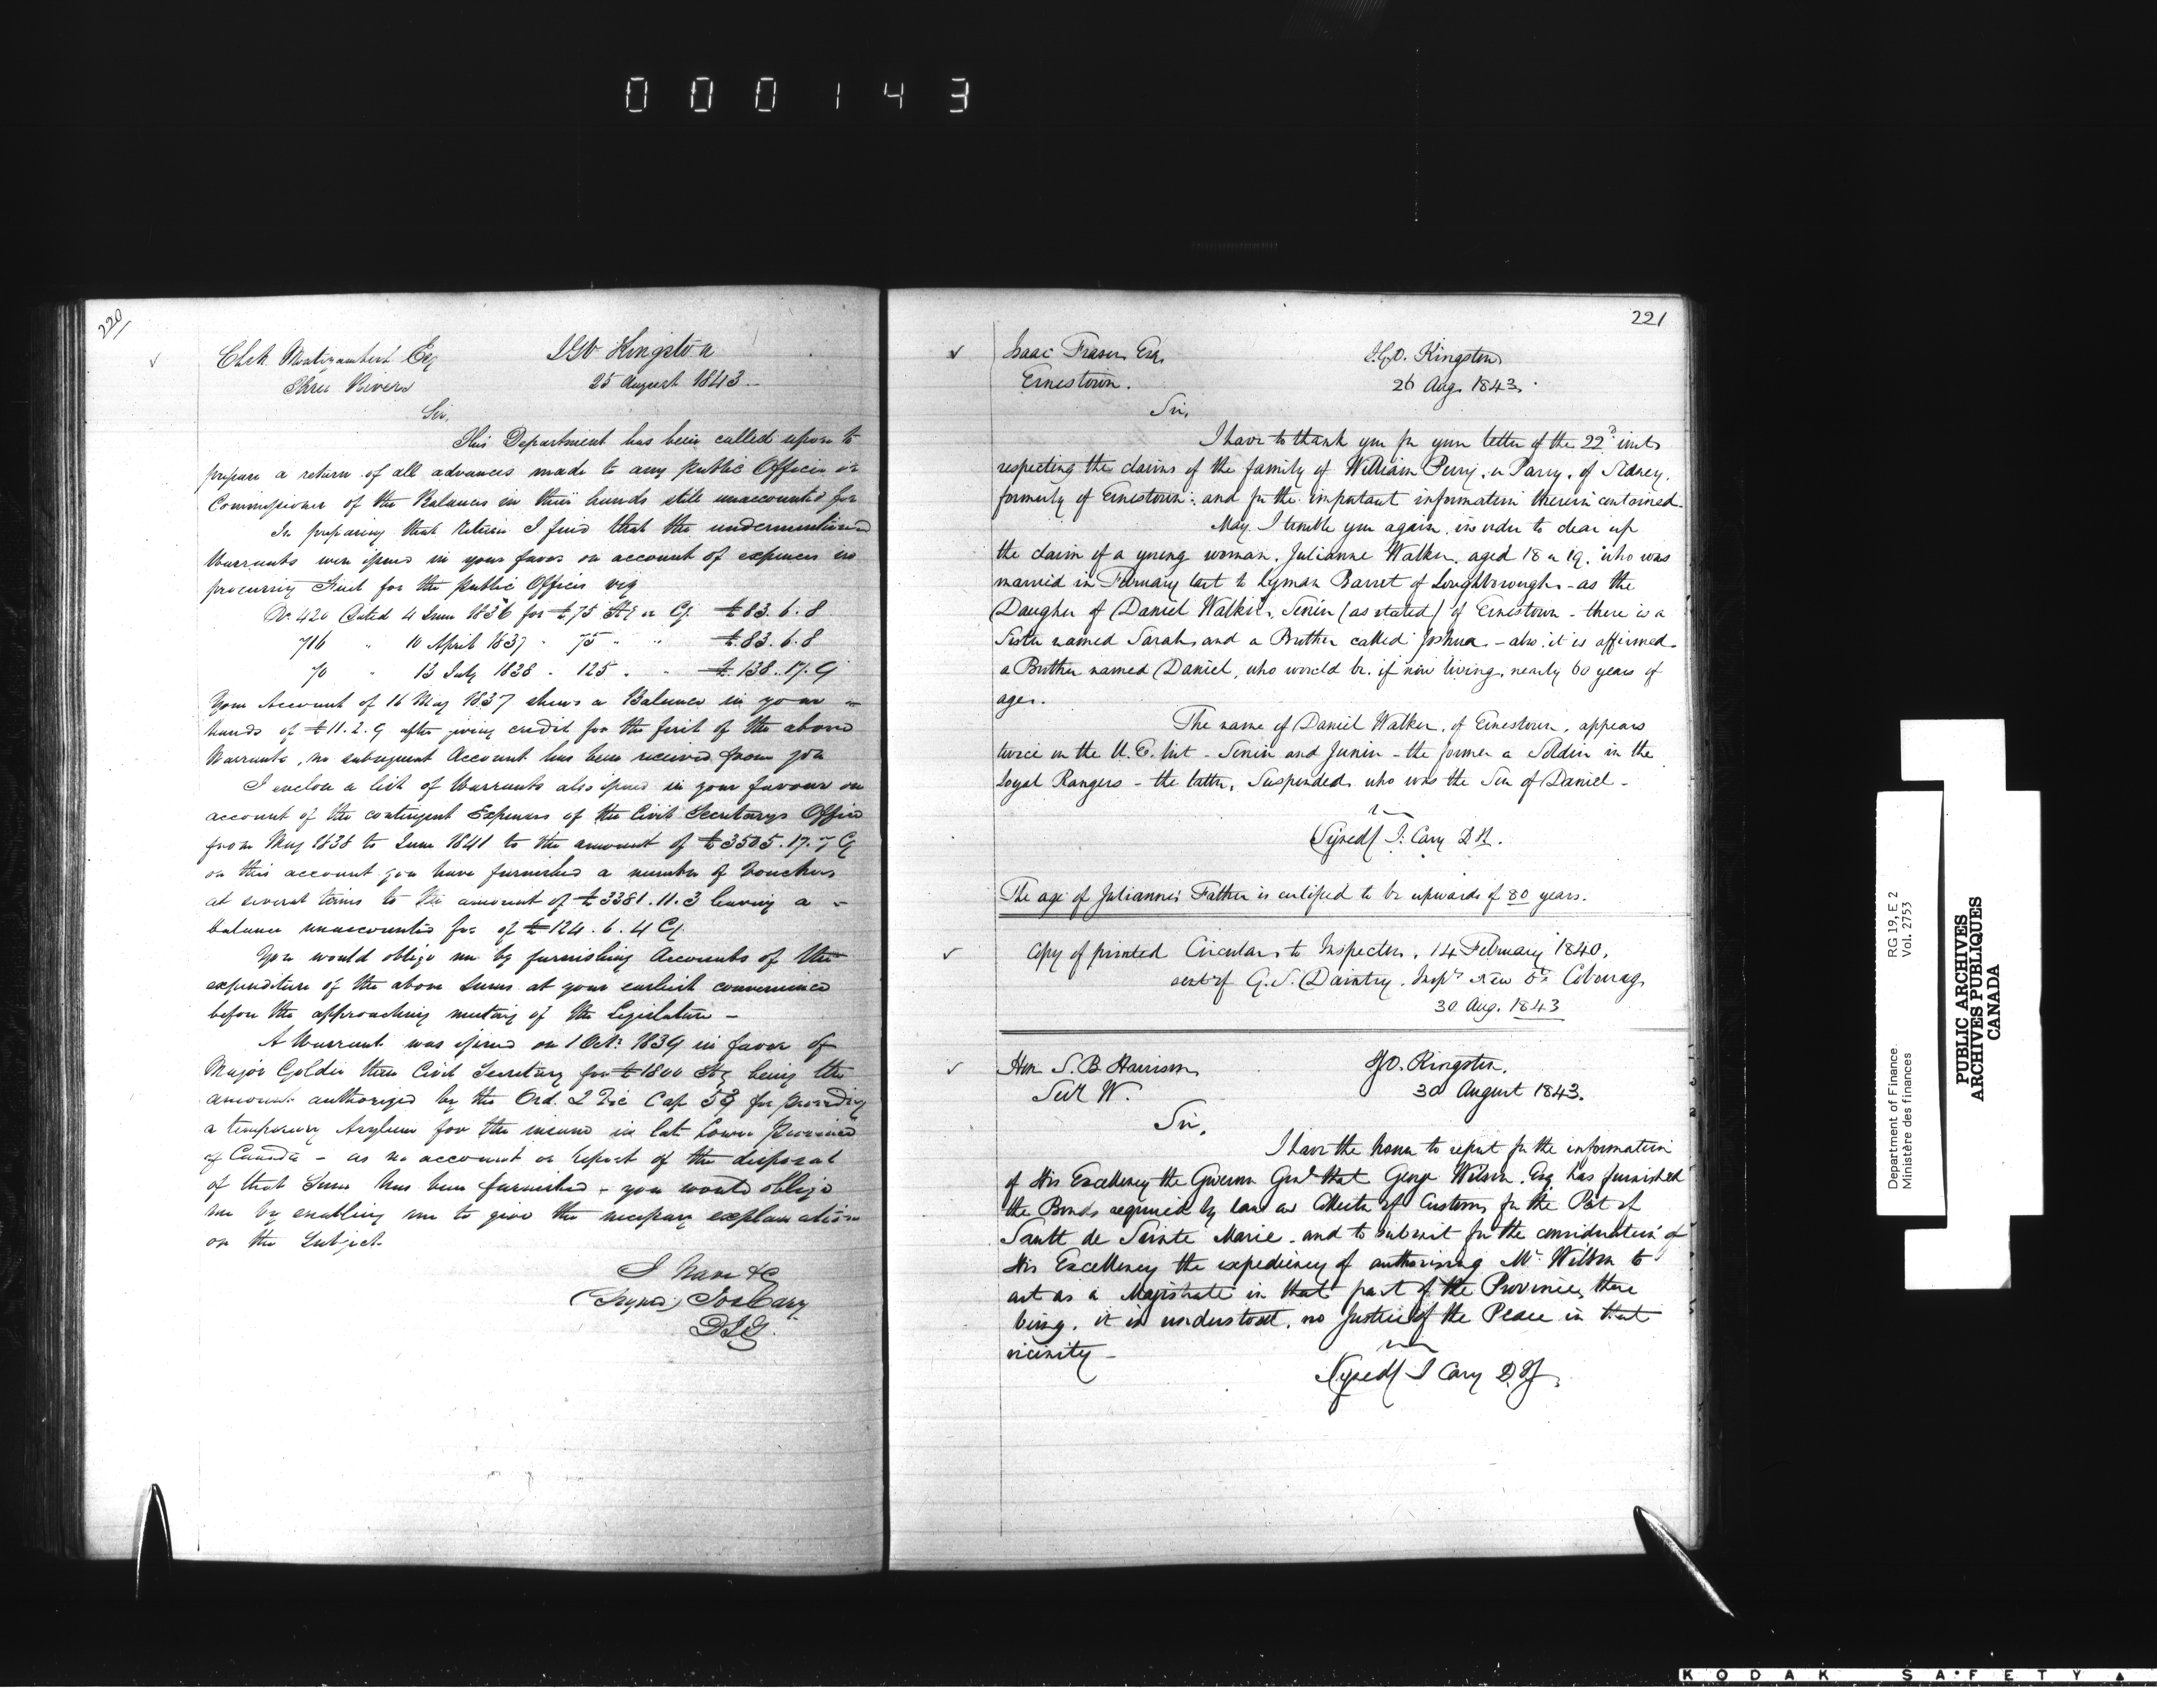 000143
220
Chek Montizambert Esq
IGO Kingston
Three Rivers
25 August 1843.-
Sir,
This Department has been called upon to
prepare a return of all advances made to any public Officer or
Commissioner of the Balances in their hands still unaccounted for
In preparing that return I find that the undermentioned
Warrants were issued in your favor on account of expences in
procuring Fuel for the public Offices viz
No 420 dated 4 June 1836 for £75 Stg or Cy £83.6.8
716 " 10 April 1837 - 75 " " £83.6.8
70 " 13 July 1838 - 125 " " £138.17.9
Your Account of 16 May 1837 shews a Balance in your -
hands of £11.2.9 after giving credit for the first of the above
Warrants, no subsequent Account has been received from you
I enclose a list of Warrants also issued in your favour on
account of the contingent Expenses of the Civil Secretarys Office
from May 1838 to June 1841 to the amount of £3505.17.7 Cy
on this account you have furnished a number of Vouchers
at several times to the amount of £3381.11.3 leaving a -
balance unaccounted for of £124.6.4 Cy.
You would oblige me by furnishing Accounts of the
expenditure of the above Sums at your earliest convenience
before the approaching meeting of the Legislature -
A Warrant was issued on 1 Octr 1839 in favor of
Major Goldie then Civil Secretary for £1800 Stg being the
amount authorized by the Ord. 2 Vic Cap 59 for providing
a temporary Asylum for the insane in late Lower Province
of Canada - as no account or report of the disposal
of that Sum has been furnished - you would oblige
me by enabling me to give the necessary explanation
on the Subject.
I have &c
(Signed) Jos Cary
D I G.
221
Isaac Fraser Esq.
I.G.O. Kingston
Ernestown.
26 Aug. 1843.
Sir,
I have to thank you for your letter of the 22d inst.
respecting the claims of the family of William Perry, or Parry, of Sidney,
formerly of Ernestown: and for the important information therein contained.
May I trouble you again, in order to clear up
the claim of a young woman, Julianne Walker, aged 18 or 19, who was
married in February last to Lyman Barret of Loughborough - as the
Daugher of Daniel Walker, Senior (as stated) of Ernestown - there is a
Sister named Sarah and a Brother called Joshua - also it is affirmed
a Brother named Daniel, who would be, if now living, nearly 60 years of
age.
The name of Daniel Walker, of Ernestown, appears
twice on the U.E. list - Senior and Junior - the former a Soldier in the
Loyal Rangers - the latter, Suspended, who was the Son of Daniel -
(Signed) J. Cary D.
The age of Julianne's Father is certified to be upwards of 80 years.
Copy of printed Circular to Inspectors, 14 February 1840,
sent G. S. Daintry, Inspr Newe Dt Cobourg,
30 Aug. 1843
Hon S. B. Harrison
IGO. Kingston,
Sec W.
30 August 1843.
Sir,
I have the honor to report for the information
of His Excellency the Governor Genl that George Wilson, Esq. has furnished
the Bonds required by law as Collector of Customs for the Port of
Sault de Sainte Marie - and to submit for the consideration of
His Excellency the expediency of authorising Mr Wilson to
act as a Magistrate in that part of the Province, there
being, it is understood, no Justice of the Peace in that
vicinity -
(Signed) J Cary D.IG.
Department of Finance
Ministère des finances
RG 19, E 2
Vol. 2753
PUBLIC ARCHIVES
ARCHIVES PUBLIQUES
CANADA
KODAK SAFETY